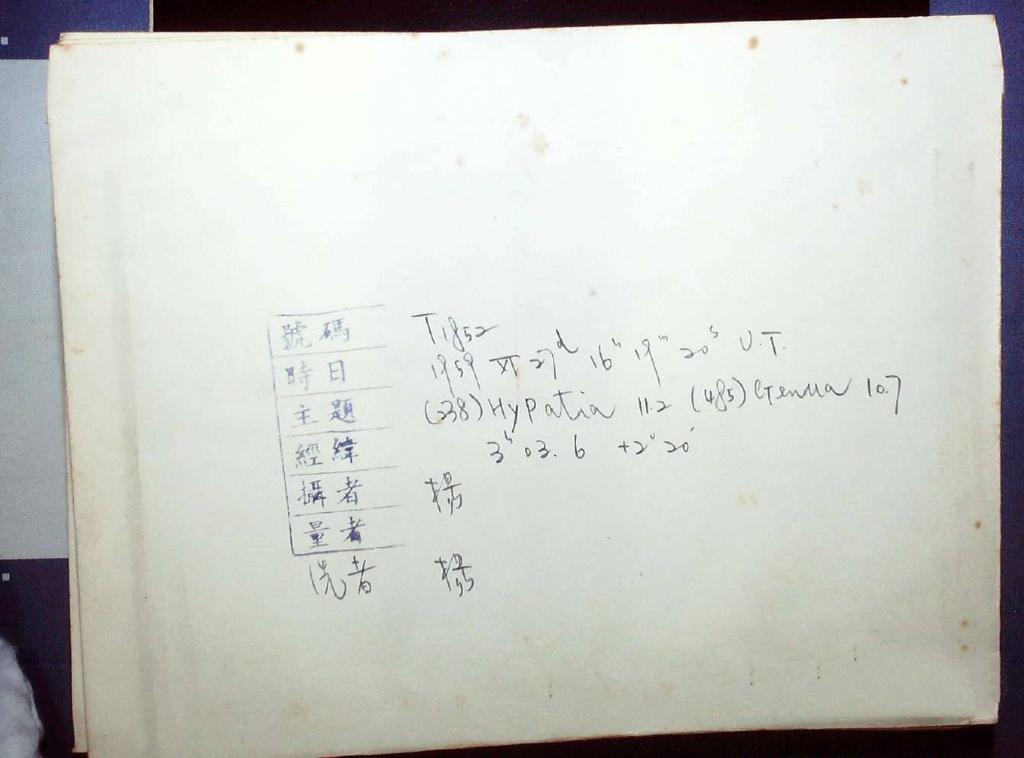 號碼 T1852
時日 1959 XI 27ᵈ 16ʰ 19ᵐ 20ˢ U.T.
主題 (238) Hypatia 11.2 (485) Genua 10.7
經緯 3ʰ 03.6 +2° 20'
攝者 楊
量者
洗者 楊